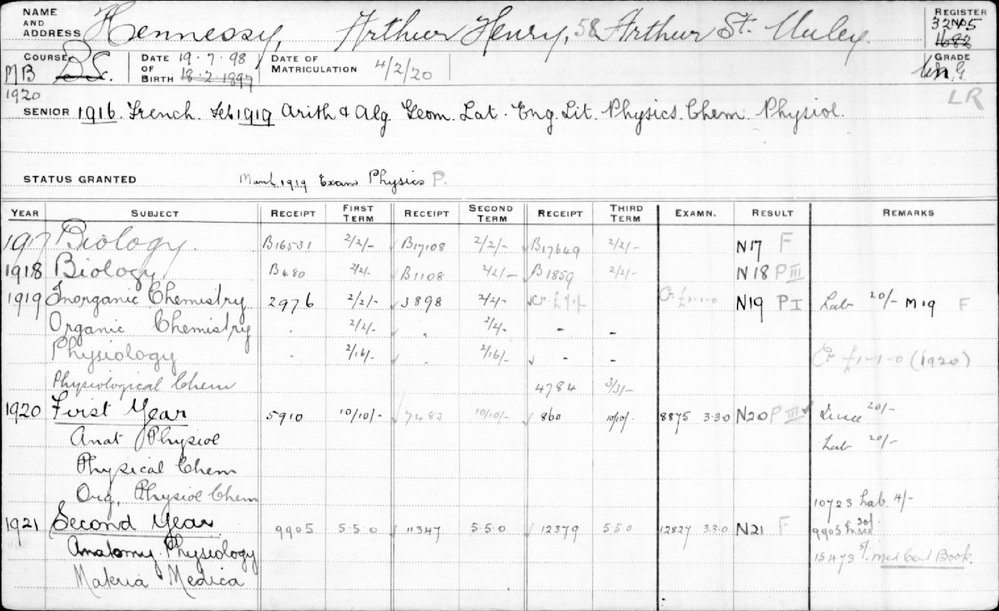 NAME AND ADDRESS Hennessy, Arthur Henry, 58 Arthur St. Unley. REGISTER No 3205 1682
COURSE MB BSc. 1920 DATE OF BIRTH 19-7-98 18-2-1897 DATE OF MATRICULATION 4/2/20 GRADE
LR
SENIOR 1916. French. Feb 1919 Arith & Alg Geom. Lat. Eng. Lit. Physics. Chem. Physiol.
STATUS GRANTED March 1919 Exam Physics P.
YEAR SUBJECT RECEIPT FIRST TERM RECEIPT SECOND TERM RECEIPT THIRD TERM EXAMN. RESULT REMARKS
1917 Biology. B16531 2/2/- B17108 2/2/- B17649 2/2/- N17 F
1918 Biology. B480 2/2/- B1108 2/2/- B1859 2/2/- N18 P III
1919 Inorganic Chemistry 2976 2/2/- 3898 2/2/- Cr £1-1-0 N19 P I Lab 20/- M19 F
Organic Chemistry - 2/2/- - 2/2/- - -
Physiology - 2/16/- 2/16/- - - Cr £1-1-0 (1920)
Physiological Chem 4784 3/3/-
1920 First Year 5910 10/10/- 7483 10/10/- 860 10/10/- 8875 3.3.0 N20 P III ✓ 20/-
Anat Physiol Lab 20/-
Physical Chem
Org. Physiol Chem 10723 Lab. 4/-
1921 Second Year 9905 5.5.0 11347 5.5.0 12379 5.5.0 12827 3.3.0 N21 F 9905 30/-
Anatomy Physiology 15473 5/- Med Cert Book.
Materia Medica